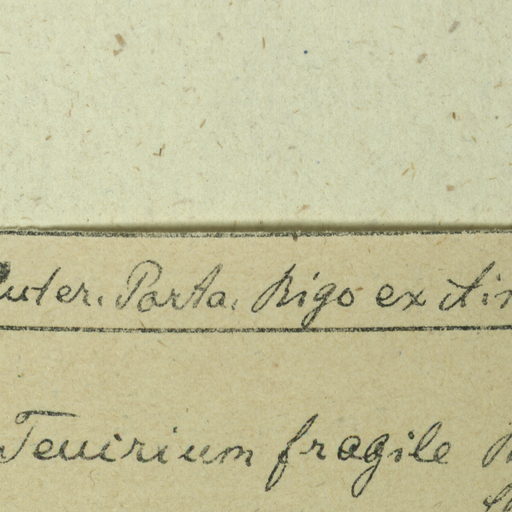 Huter. Porta. Rigo ex itin
Teucrium fragile